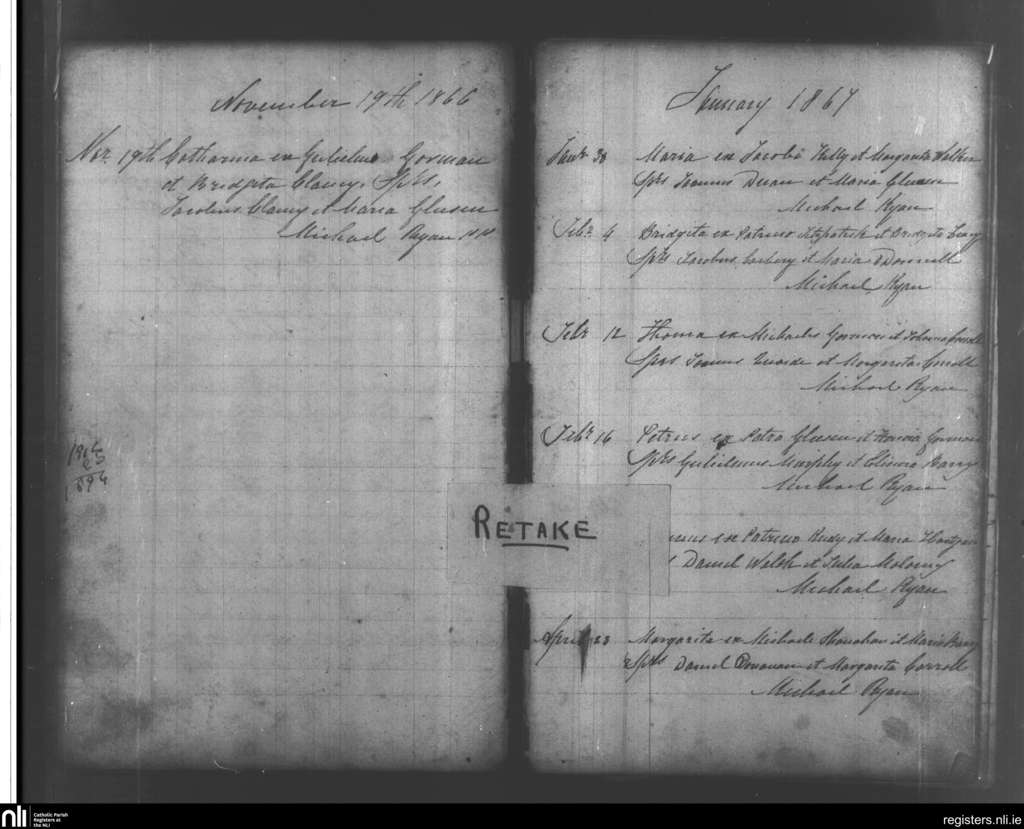 November 19th 1866
Nov. 19th Catharina ex Gulielmo Gorman
et Bridgita Clancy. Sprs.
Jacobus Clancy et Maria Gleeson
Michael Ryan PP
1866
1894
January 1867
Maria ex Jacobo Kelly et Margarita
Sprs et Maria Gleeson
Michael Ryan
Febr 4 Bridgita ex Patricio Fitzpatrick et Bridgita
Sprs Jacobus et Maria O Donnell
Michael Ryan
Febr 12 Thoma ex Michaele et
Sprs et Margarita Carroll
Michael Ryan
Febr 16 Petrus ex Petro Gleeson et Honoria Gorman
Sprs Gulielmus Murphy et Elenora Barry
Michael Ryan
RETAKE
ex Patricio et Maria Hartigan
Daniel Walsh et Julia Molony
Michael Ryan
April 23 Margarita ex Michaele Shanahan et Maria Barry
Sprs Daniel et Margarita Carroll
Michael Ryan
nli
Catholic Parish
Registers at
the NLI
registers.nli.ie